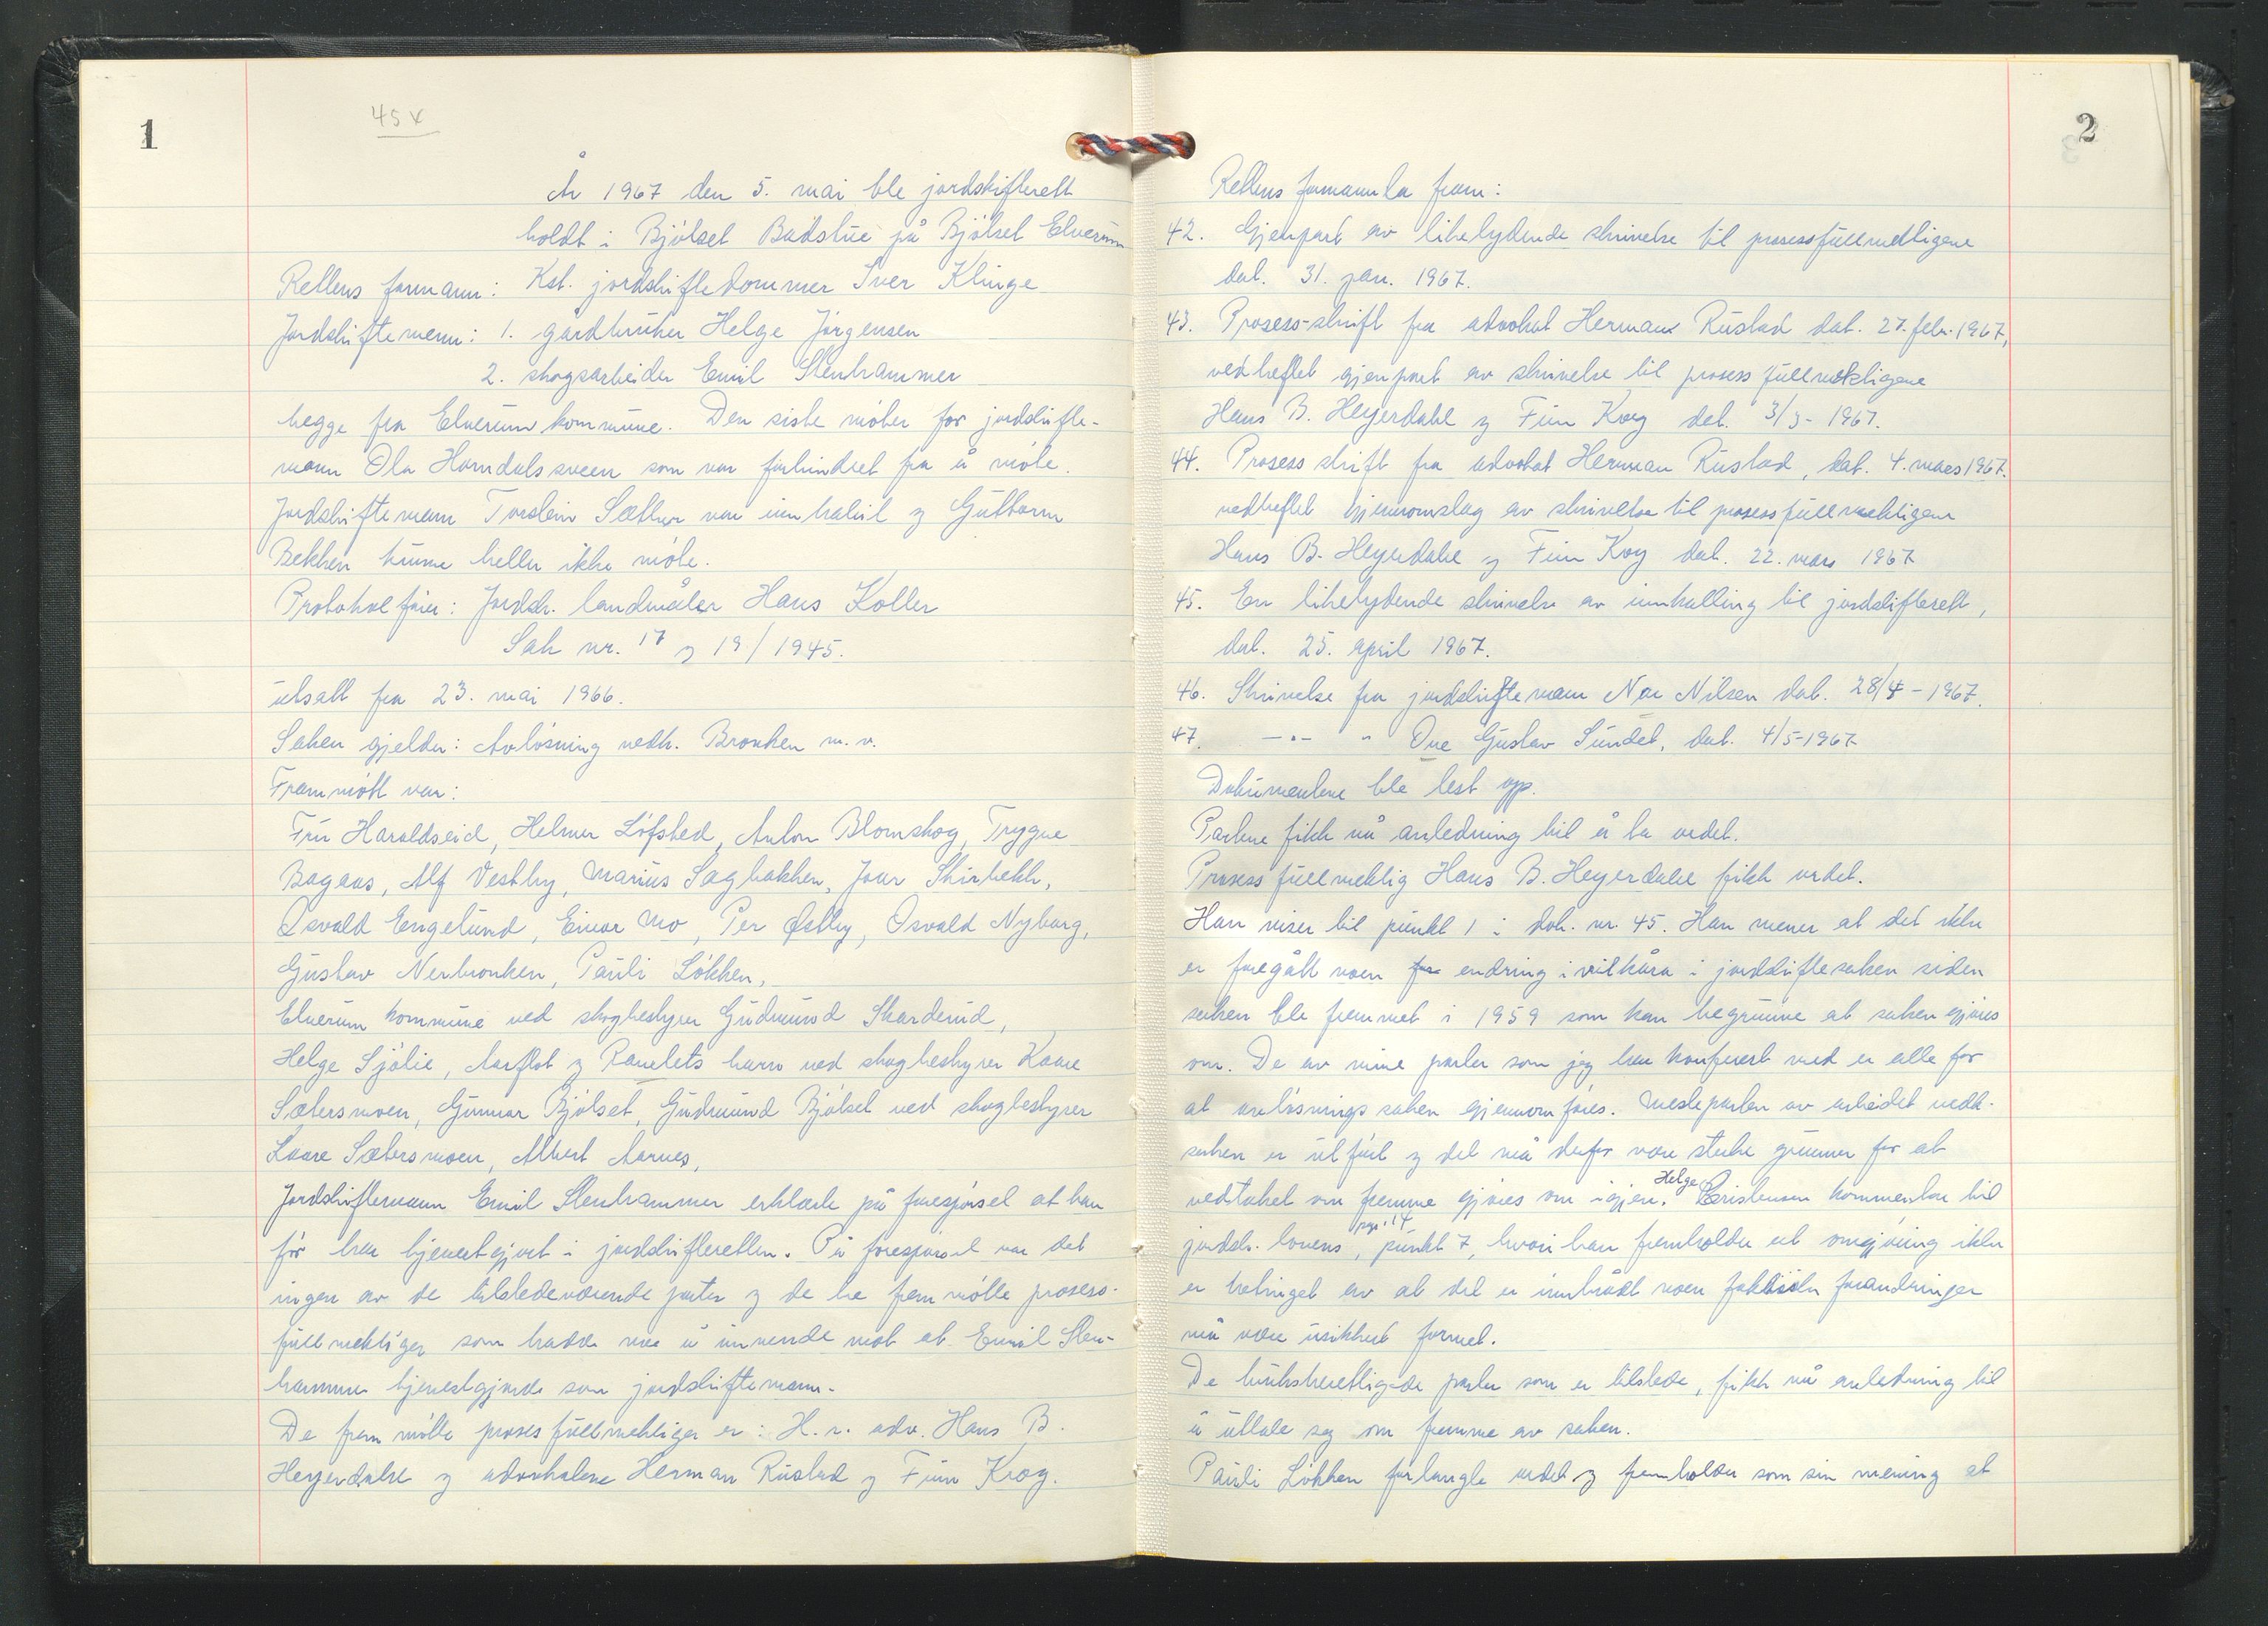 1
45 x
År 1967 den 5. mai ble jordskifterett
holdt i Bjölset Badstue på Bjölset Elverum
Rettens formann: Kst. jordskiftedommer Iver Klinge
Jordskiftemenn: 1. gårdbruker Helge Jörgensen
2. skogsarbeider Emil Stenhammer
begge fra Elverum kommune. Den siste möter for jordskifte-
mann Ola Horndalssveen som var forhindret fra å möte.
Jordskiftemann Torstein Sæther var innkalt og Guttorm
Bekken kunne heller ikke möte.
Protokollförer: Jordsk. landmåler Hans Koller
Sak nr. 17 og 19/1945.
utsatt fra 23. mai 1966.
Saken gjelder: Avlösning vedk. Bronken m. v.
Frammött var:
Fru Haraldseid, Helmer Löfsted, Anton Blomskog, Trygve
Bagaas, Alf Vestby, Marius Sagbakken, Joar Skirbekk,
Osvald Engelund, Einar Mo, Per Østby, Osvald Nyborg,
Gustav Nerbronken, Pauli Lökken,
Elverum kommune ved skogbestyrer Gudmund Skarderud,
Helge Sjölie, Aarflot og Ramlets barn ved skogbestyrer Kaare
Sætersmoen, Gunnar Bjölset, Gudmund Bjölset ved skogbestyrer
Kaare Sætersmoen, Albert Aarnes,
Jordskiftemann Emil Stenhammer erklærte på forespörsel at han
för har tjenestgjort i jordskifteretten. På forespörsel var det
ingen av de tilstedeværende parter og de tre frammötte prosess-
fullmektiger som hadde noe å innvende mot at Emil Sten-
hammer tjenestgjorde som jordskiftemann.
De frammötte prosessfullmektiger er: H. r. adv. Hans B.
Heyerdahl og advokatene Herman Rustad og Finn Krog.
2
Rettens formann la fram:
42. Gjenpart av likelydende skrivelse til prosessfullmektigene
dat. 31. jan. 1967.
43. Prosess-skrift fra advokat Herman Rustad dat. 27. febr. 1967,
vedheftet gjenpart av skrivelse til prosessfullmektigene
Hans B. Heyerdahl og Finn Krog dat. 3/3-1967.
44. Prosess skrift fra advokat Herman Rustad, dat. 4. mars 1967.
vedheftet gjennomslag av skrivelse til prosessfullmektigene
Hans B. Heyerdahl og Finn Krog dat. 22. mars 1967
45. En likelydende skrivelse av innkalling til jordskifterett,
dat. 25. april 1967.
46. Skrivelse fra jordskiftemann Nar Nilsen dat. 28/4-1967.
47. -"- " Ove Gustav Sundet, dat. 4/5-1967
Dokumentene ble lest opp.
Partene fikk nå anledning til å ta ordet.
Prosessfullmektig Hans B. Heyerdahl fikk ordet.
Han viser til punkt 1 i dok. nr. 45. Han mener at det ikke
er foregått noen for endring i vilkåra i jordskiftesaken siden
saken ble fremmet i 1959 som kan begrunne at saken gjöres
om. De av mine parter som jeg har konferert med er alle for
at avlösningssaken gjennomföres. Mesteparten av arbeidet vedk.
saken er utfört og det må derfor være sterke grunner for at
vedtaket om fremme gjöres om igjen. Helge Christensen kommentar til
jordsk. lovens pgr. 14, punkt 7, hvori han fremholder at omgjöring ikke
er betinget av at det er inntrådt noen faktiske forandringer
må være usikkert formet.
De bruksberettigede parter som er tilstede, fikk nå anledning til
å uttale seg om fremme av saken.
Pauli Lökken forlangte ordet og fremholder som sin mening at